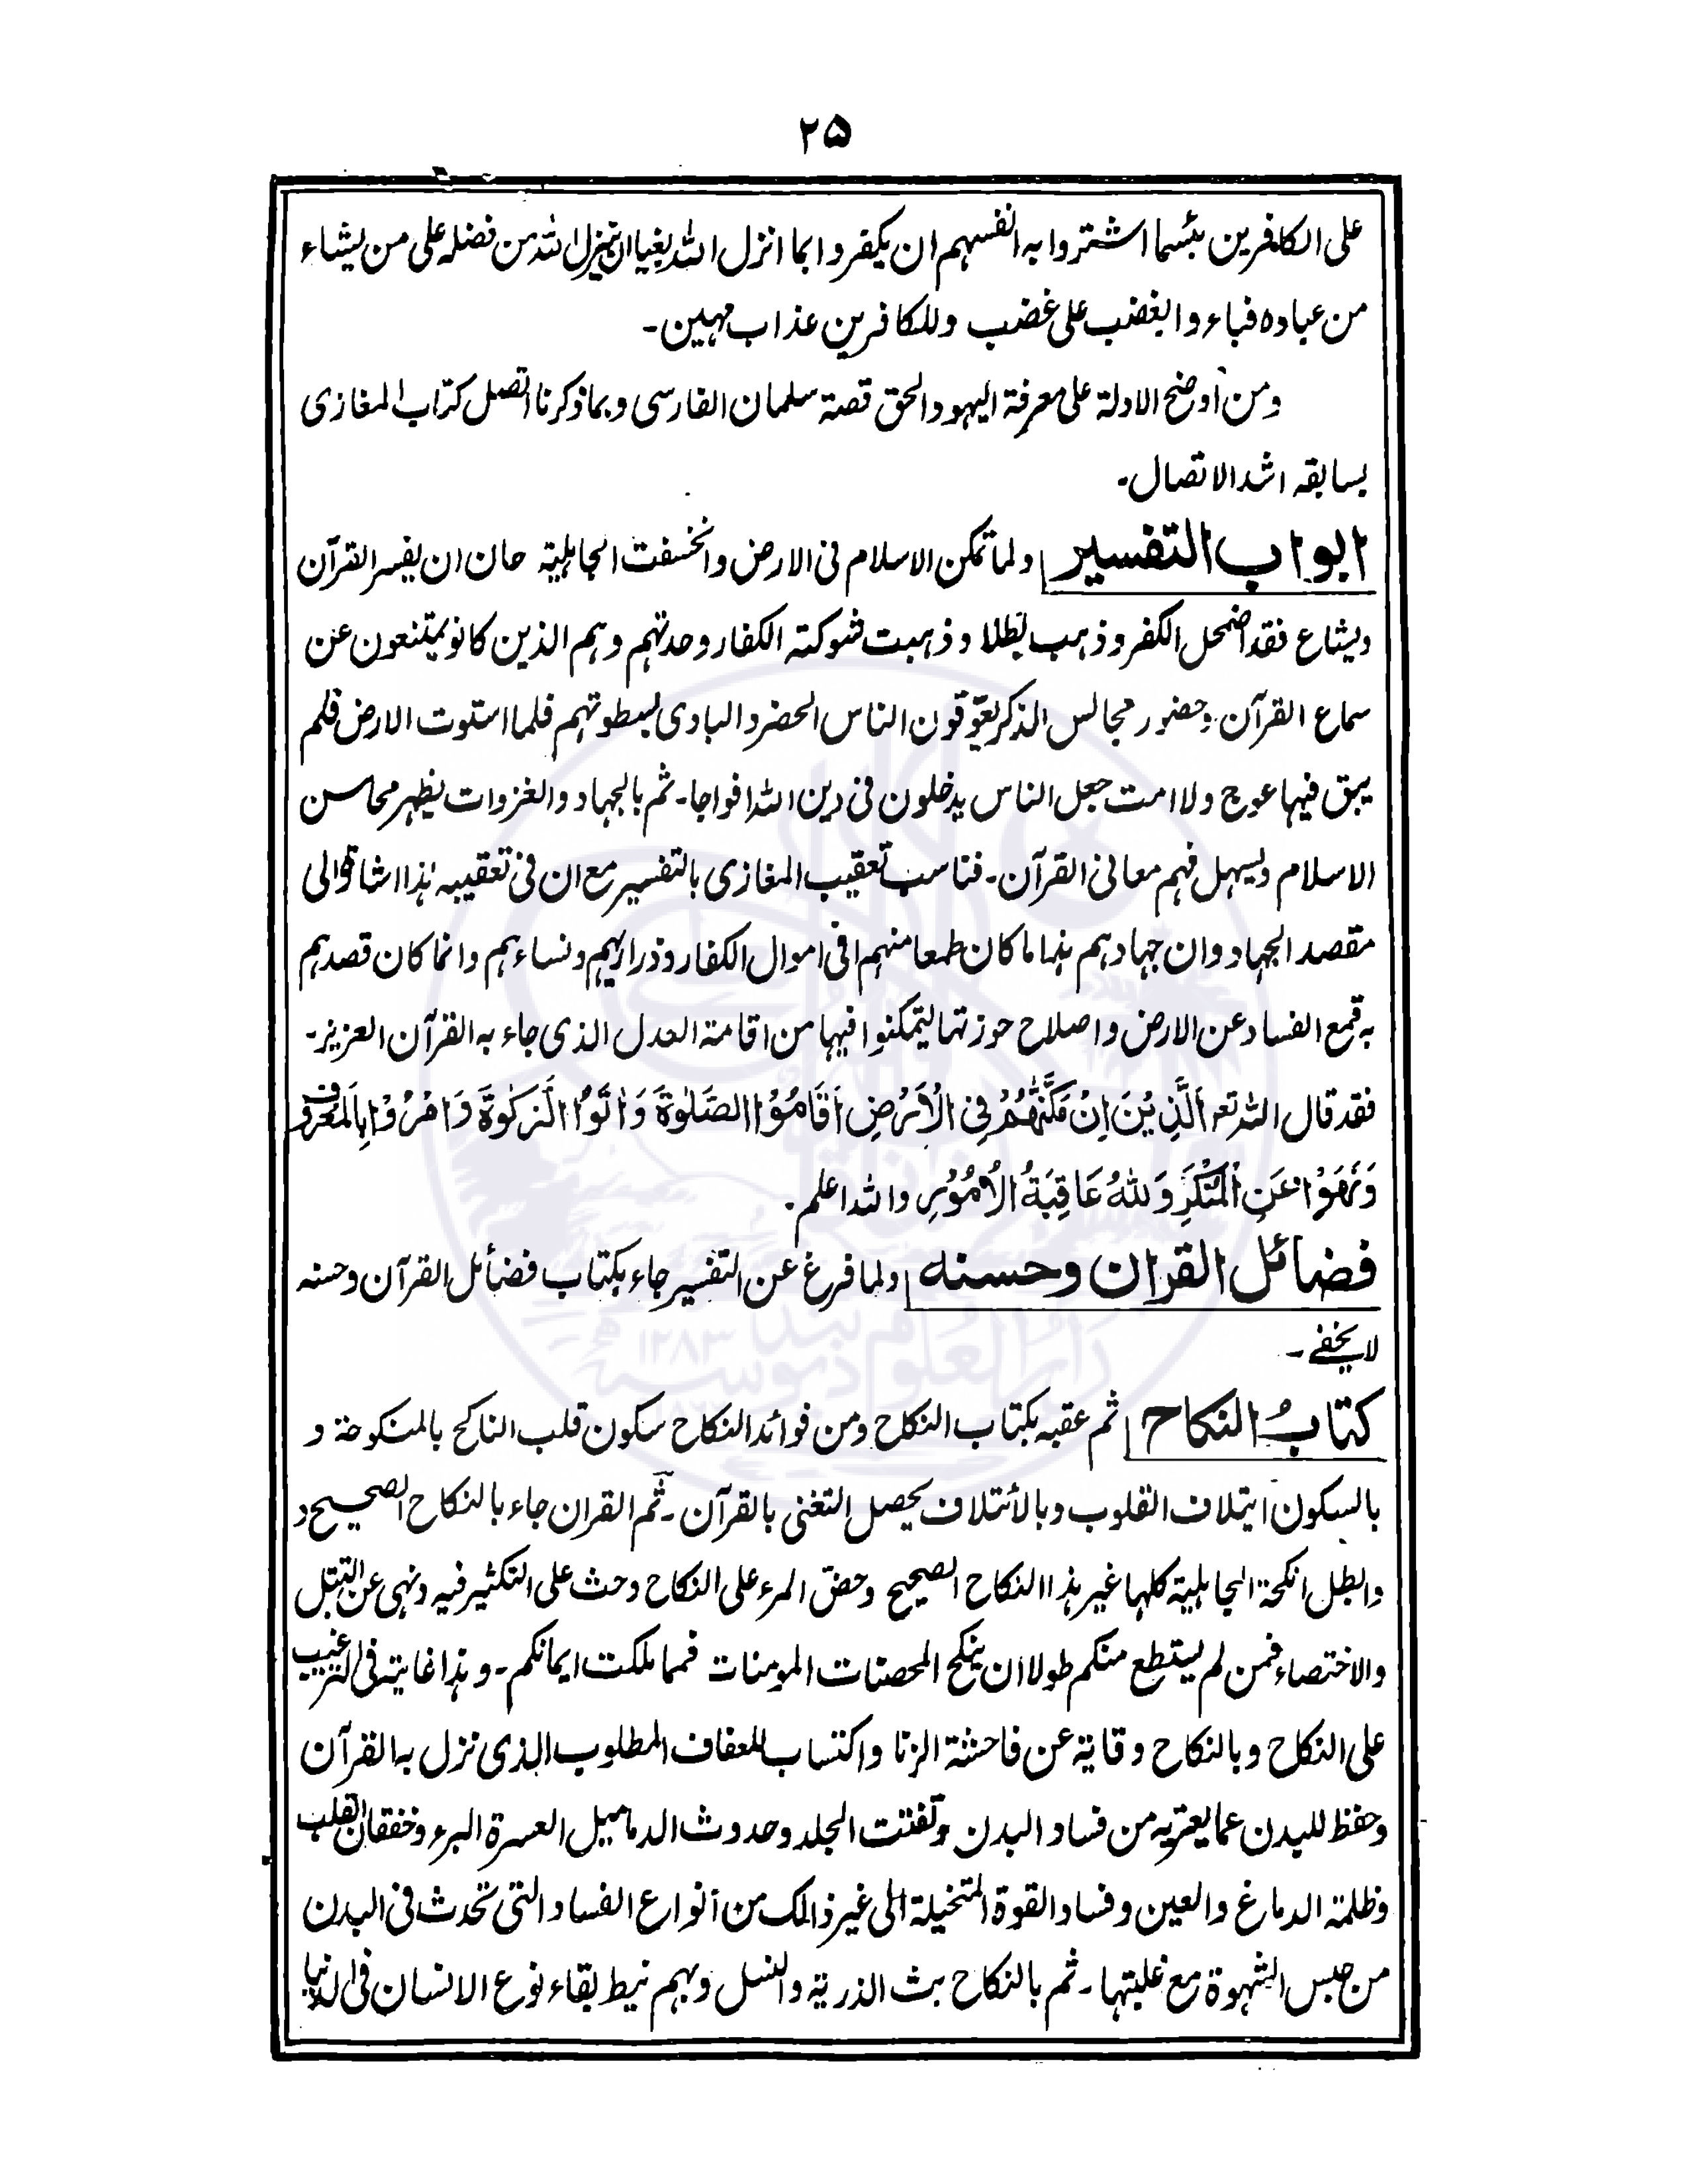 ۲۵
على الكافرين بئسما اشتروا به انفسهم ان يكفروا بما انزل الله بغيا ان ينزل الله من فضله على من يشاء
من عباده فباءو ا بغضب على غضب وللكافرين عذاب مهين۔
ومن أوضح الادلة على معرفة اليهود الحق قصة سلمان الفارسى وبما ذكرنا اتصل كتاب المغازى
بسابقه اشد الاتصال۔
ابواب التفسير ولما تمكن الاسلام فى الارض وانخسفت الجاهلية حان ان يفسر القرآن
ويشاع فقد اضمحل الكفر وذهب بطلا وذهبت شوكته الكفار وحدتهم وهم الذين كانو يمتنعون عن
سماع القرآن وحضور مجالس الذكر يعوّقون الناس الحضر والبادى بسطوتهم فلما استوت الارض فلم
يبق فيها عوج ولا امت جعل الناس يدخلون فى دين الله افواجا۔ ثم بالجهاد والغزوات يظهر محاسن
الاسلام ويسهل فهم معانى القرآن۔ فناسب تعقيب المغازى بالتفسير مع ان فى تعقيبه هٰذا اشارة الى
مقصد الجهاد وان جهادهم هذا ما كان طمعا منهم فى اموال الكفار وذراريهم ونساءهم وانما كان قصدهم
به قمع الفساد عن الارض واصلاح حوزتها ليتمكنوا فيها من اقامة العدل الذى جاء به القرآن العزيز۔
فقد قال الله تعہ اَلَّذِيْنَ اِنْ مَّكَّنّٰهُمْ فِى الْاَرْضِ اَقَامُوْا الصَّلٰوةَ وَاٰتَوُا الَّزكٰوةَ وَاَمَرُوْا بِالْمَعْرُوفِ
وَنَهَوْا عَنِ الْمُنْكَرِ وَلِلّٰهُ عَاقِبَةُ الْاُمُوْرِ والله اعلم۔
فضائل القران وحسنه ولما فرغ عن التفسير جاء بكتاب فضأئل القرآن وحسنه
لا يخفے۔
كتابُ النكاح ثم عقبه بكتاب النكاح ومن فوائد النكاح سكون قلب الناكح بالمنكوحة و
بالسكون ايتلاف القلوب وبالأئتلاف يحصل التغنى بالقرآن۔ ثم القران جاء بالنكاح الصحيح و
وابطل انكحة الجاهلية كلها غير هذا النكاح الصحيح وحضّ المرء على النكاح وحث على التكثير فيه ونهى عن التبتل
والاختصاء فمن لم يستطع منكم طولا ان ينكح المحصنات المومنات فمما ملكت ايمانكم۔ وهذا غاية فى الترغيب
على النكاح وبالنكاح وقاية عن فاحشة الزنا واكتساب للعفاف المطلوب الذى نزل به القرآن
وحفظ للبدن عما يعتريه من فساد البدن وتفتت الجلد وحدوث الدماميل العسرة البرء وخفقان القلب
وظلمة الدماغ والعين وفساد القوة المتخيلة الى غير ذالك من أنواع الفساد التى تحدث فى البدن
من حبس الشهوة مع غلبتها۔ ثم بالنكاح بث الذرية والنسل وبهم نيط بقاء نوع الانسان فى الدنيا